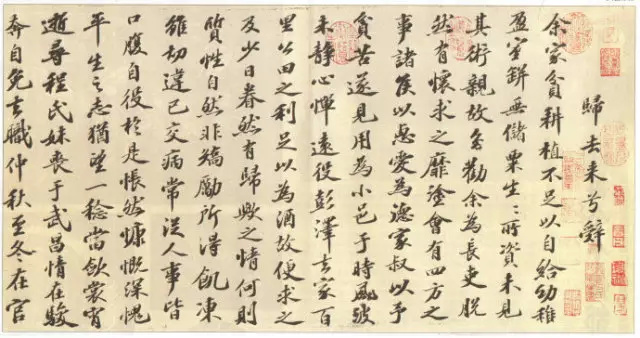 歸去来兮辭
余家貧耕植不足以自給幼稚
盈室缾無儲粟生〻所資未見
其術親故多勸余為長吏脫
然有懷求之靡塗會有四方之
事諸侯以惠愛為德家叔以予
貧苦遂見用為小邑于時風波
未静心憚遠役彭澤去家百
里公田之利足以為酒故便求之
及少日眷然有歸歟之情何則
質性自然非矯勵所得飢凍
雖切違已交病常從人事皆
口腹自役於是悵然慷慨深愧
平生之志猶望一稔當斂裳宵
逝尋程氏妹喪于武昌情在駿
奔自免去職仲秋至冬在官